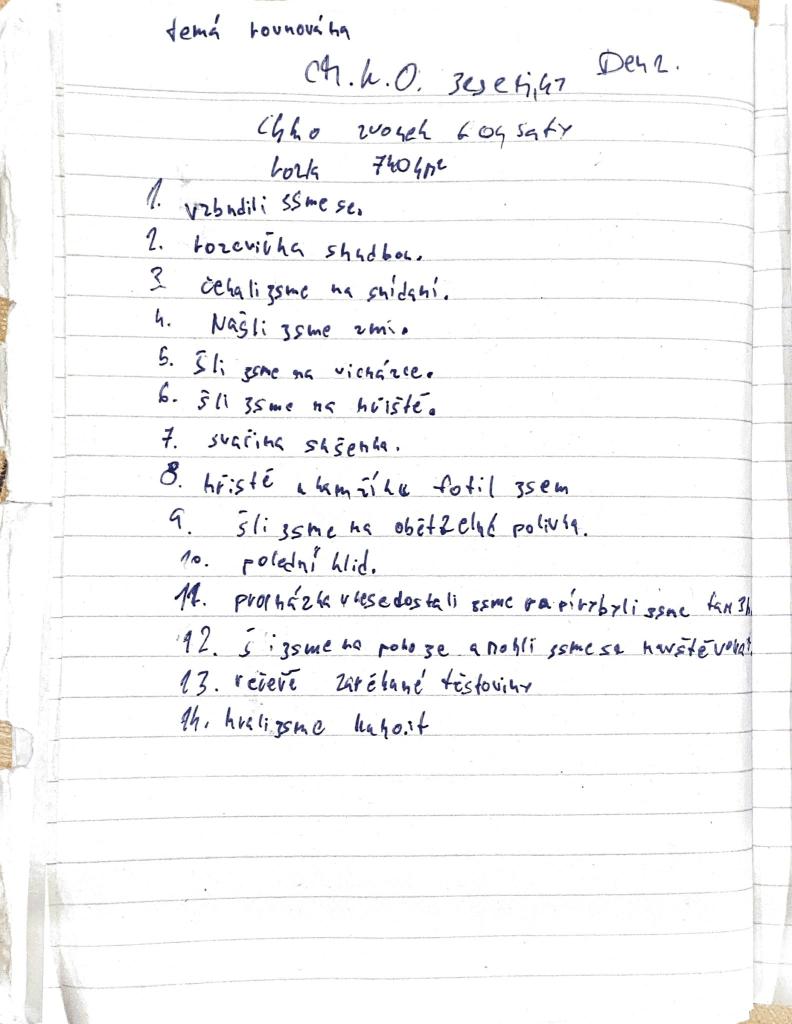 temá rovnováha
CH.K.O. Jeseníky Den 2.
Chko zvonek
rozk 740 km²
1. vzbudili jsme se.
2. rozcvička s hudbou.
3 čekali jsme na snídaní.
4. Našli jsme zmi.
5. šli jsme na vicházce.
6. šli jsme na hřiště.
7. svačina sušenka.
8. hřistě a kamžíka fotil jsem
9. šli jsme na obět zelná polivka.
10. polední klid.
11. procházka v lese dostali jsme papír byli jsme tam 3h
12. šli jsme na pokoje a mohli jsme se navštěvovat
13. večeře zapékané těstoviny
14. hrali jsme kahoot